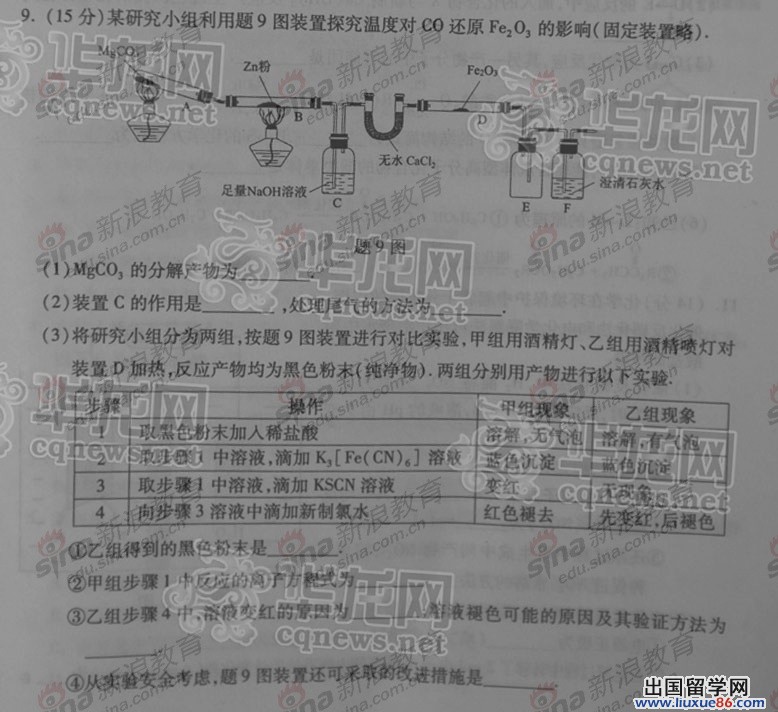 9. (15分)某研究小组利用题9图装置探究温度对CO还原Fe₂O₃的影响(固定装置略).
MgCO₃
Zn粉
Fe₂O₃
A
B
D
无水CaCl₂
足量NaOH溶液
C
E
F
澄清石灰水
题9图
(1)MgCO₃的分解产物为______.
(2)装置C的作用是______,处理尾气的方法为______.
(3)将研究小组分为两组,按题9图装置进行对比实验,甲组用酒精灯、乙组用酒精喷灯对
装置D加热,反应产物均为黑色粉末(纯净物).两组分别用产物进行以下实验.
步骤 操作 甲组现象 乙组现象
1 取黑色粉末加入稀盐酸 溶解,无气泡 溶解,有气泡
2 取步骤1中溶液,滴加K₃[Fe(CN)₆]溶液 蓝色沉淀 蓝色沉淀
3 取步骤1中溶液,滴加KSCN溶液 变红 无现象
4 向步骤3溶液中滴加新制氯水 红色褪去 先变红,后褪色
①乙组得到的黑色粉末是______.
②甲组步骤1中反应的离子方程式为______.
③乙组步骤4中,溶液变红的原因为______;溶液褪色可能的原因及其验证方法为
______.
④从实验安全考虑,题9图装置还可采取的改进措施是______.
sina新浪教育
edu.sina.com.cn
华龙网
cqnews.net
出国留学网
www.liuxue86.com